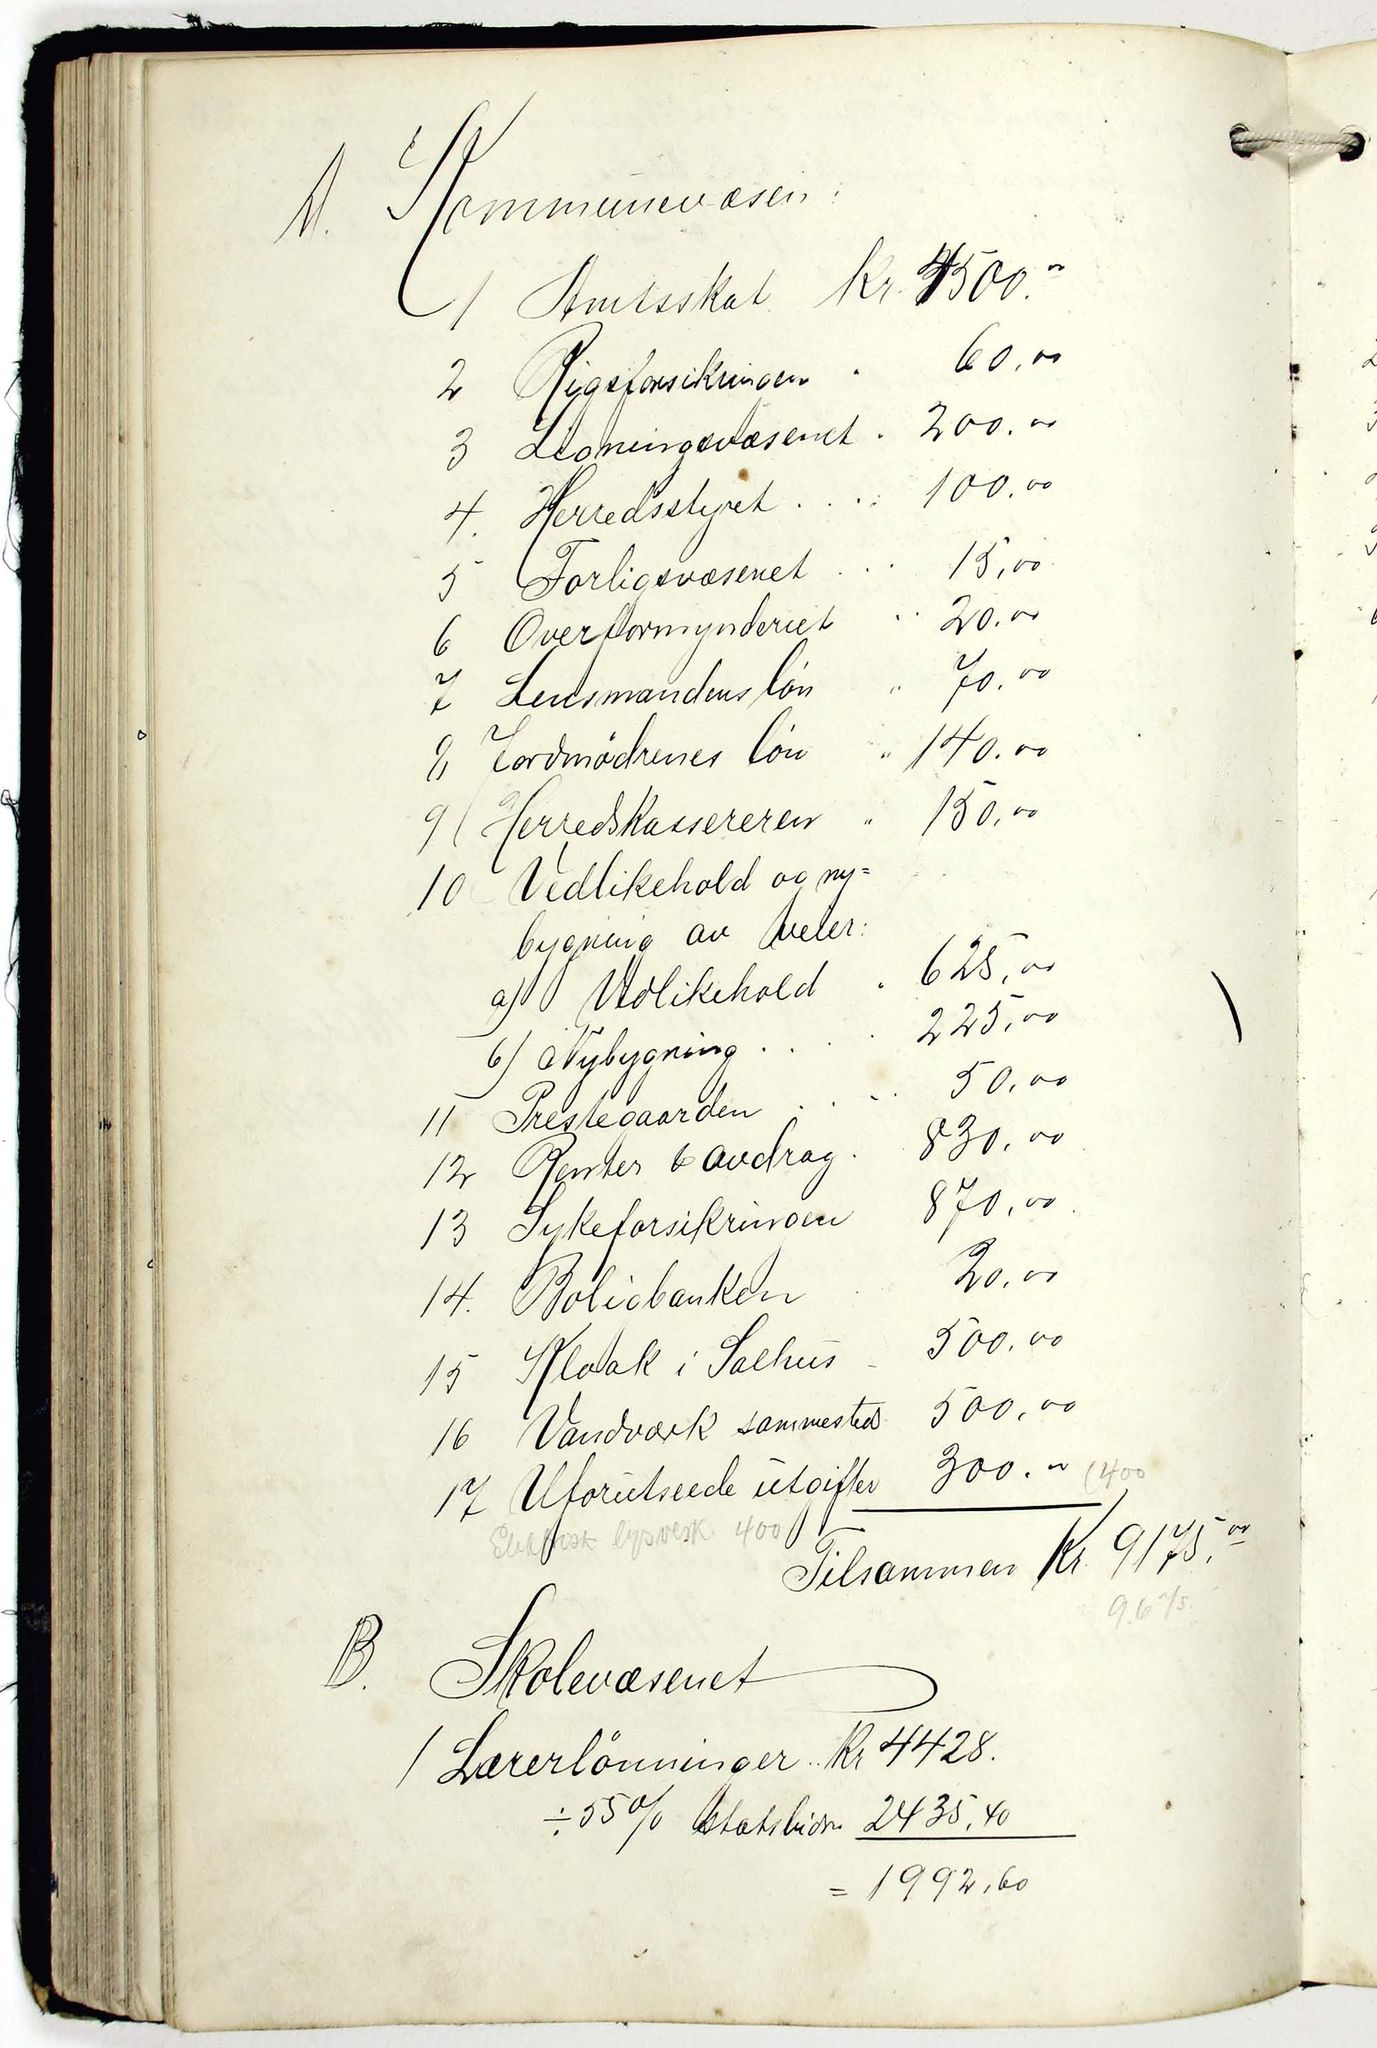 A. Kommunevæsen:
1 Amtsskat Kr. 4500.00
2 Rigsforsikringen . 60,00
3 Ligningsvæsenet . 200.00
4. Herredsstyret .... 100.00
5 Forligsvæsenet ... 15,00
6 Overformynderiet .. 20.00
7 Lensmandens løn " 70.00
8 Jordmødrenes løn " 140.00
9 Herredskassereren " 150,00
10 Vedlikehold og ny=
bygning av veier:
a) Vedlikehold . 625,00
b) Nybygning .... 225,00
11 Prestegaarden .... 50,00
12 Renter & avdrag . 830,00
13 Sykeforsikringen 870,00
14. Boligbanken . 20,00
15 Kloak i Salhus - 500.00
16 Vandværk sammesteds 500,00
17 Uforutseede utgifter 300.00 (400
Elektrisk lysverk 400
Tilsammen Kr. 9175,00
9675.
B. Skolevæsenet
1 Lærerlønninger .. Kr 4428.
÷ 55% statsbidr. 2435,40
= 1992,60